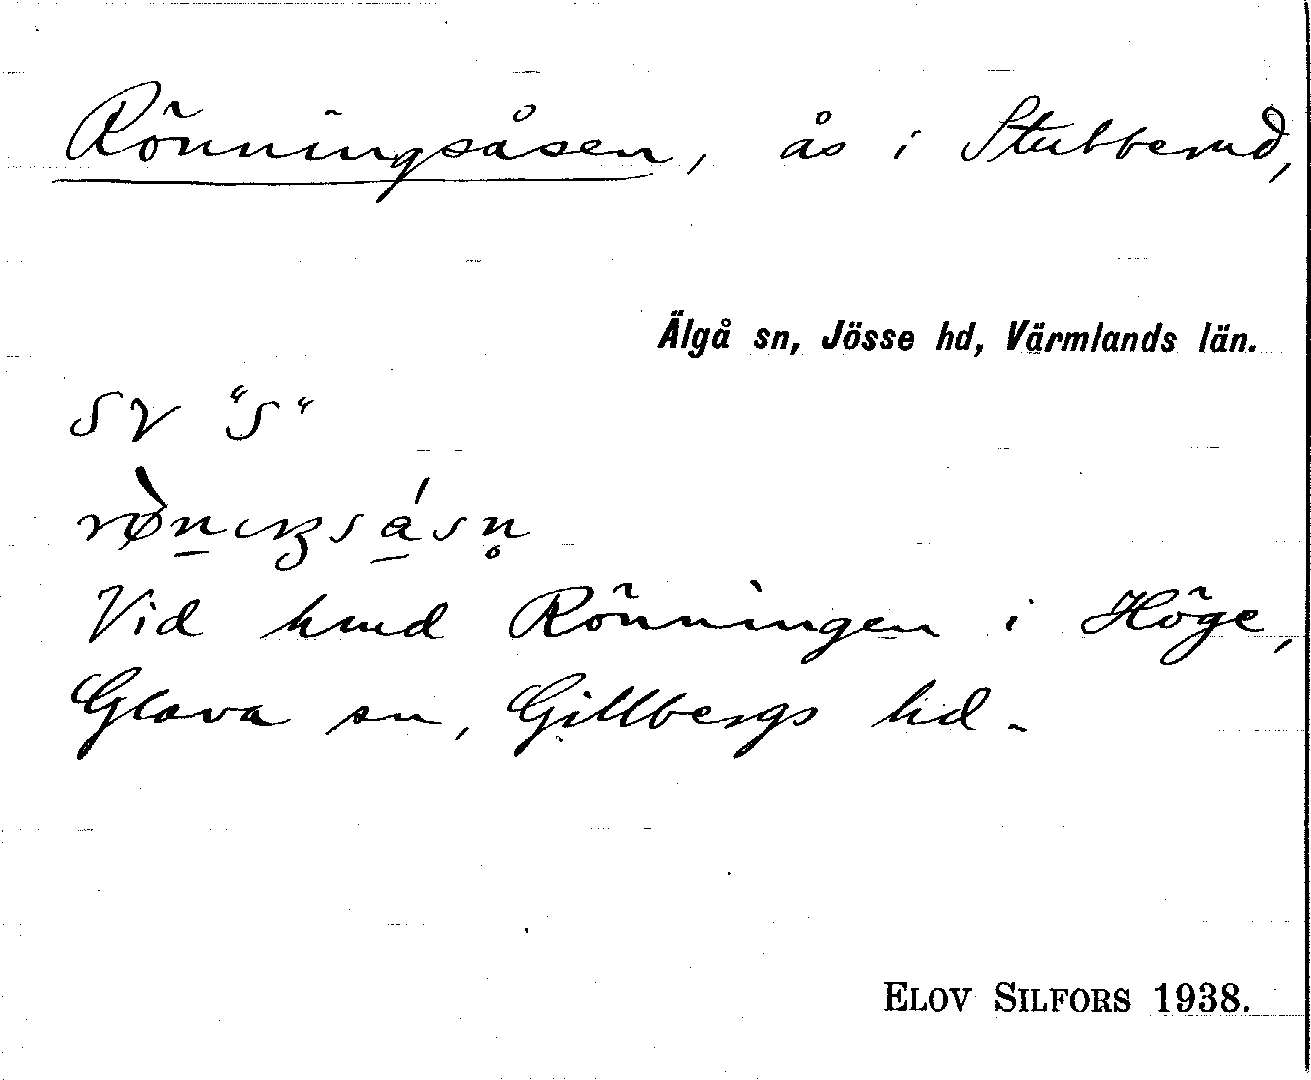 Rönningsåsen, ås i Stubberud,
Älgå sn, Jösse hd, Värmlands län.
SV "S"
Vid hmd Rönningen i Höge,
Glava sn, Gillbergs hd.
ELOV SILFORS 1938.